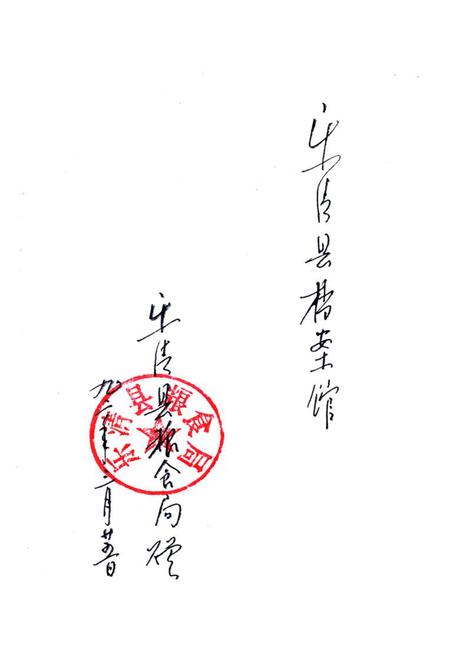 乐清县档案馆
乐清县粮食局赠
九三年二月廿五日
乐清县粮食局